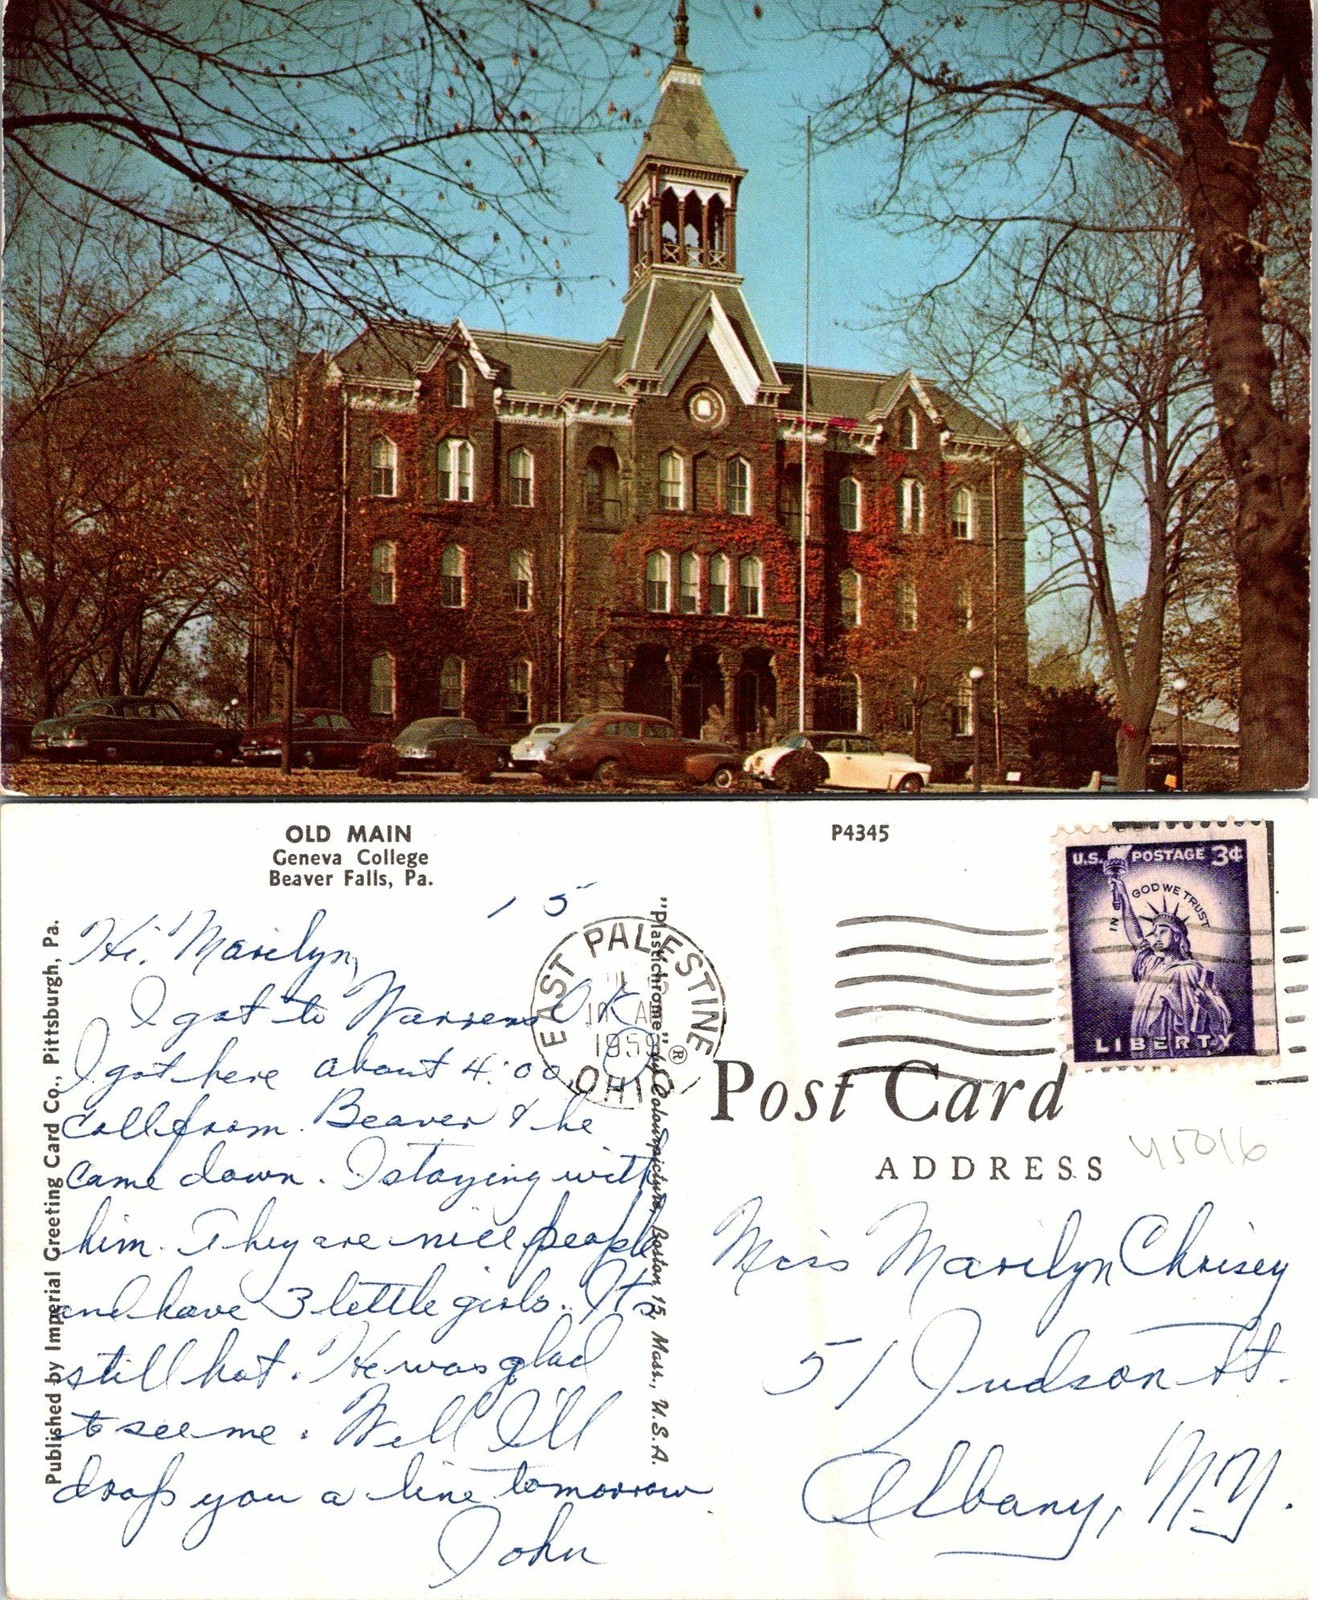 OLD MAIN
Geneva College
Beaver Falls, Pa.
P4345
U.S. POSTAGE 3¢
IN GOD WE TRUST
LIBERTY
EAST PALESTINE
OHIO
15
Hi Marilyn,
I got to Warrens OK
I got here about 4:00,
Call from Beaver & he
came down. I staying with
him. They are nice people
and have 3 little girls. It's
still hot. He was glad
to see me. Well I'll
drop you a line tomorrow.
John
Published by Imperial Greeting Card Co., Pittsburgh, Pa.
"Plastichrome" ® by Colourpicture, Boston 15, Mass., U.S.A.
Post Card
ADDRESS
45016
Miss Marilyn Chrisey
51 Judson St.
Albany, N.Y.